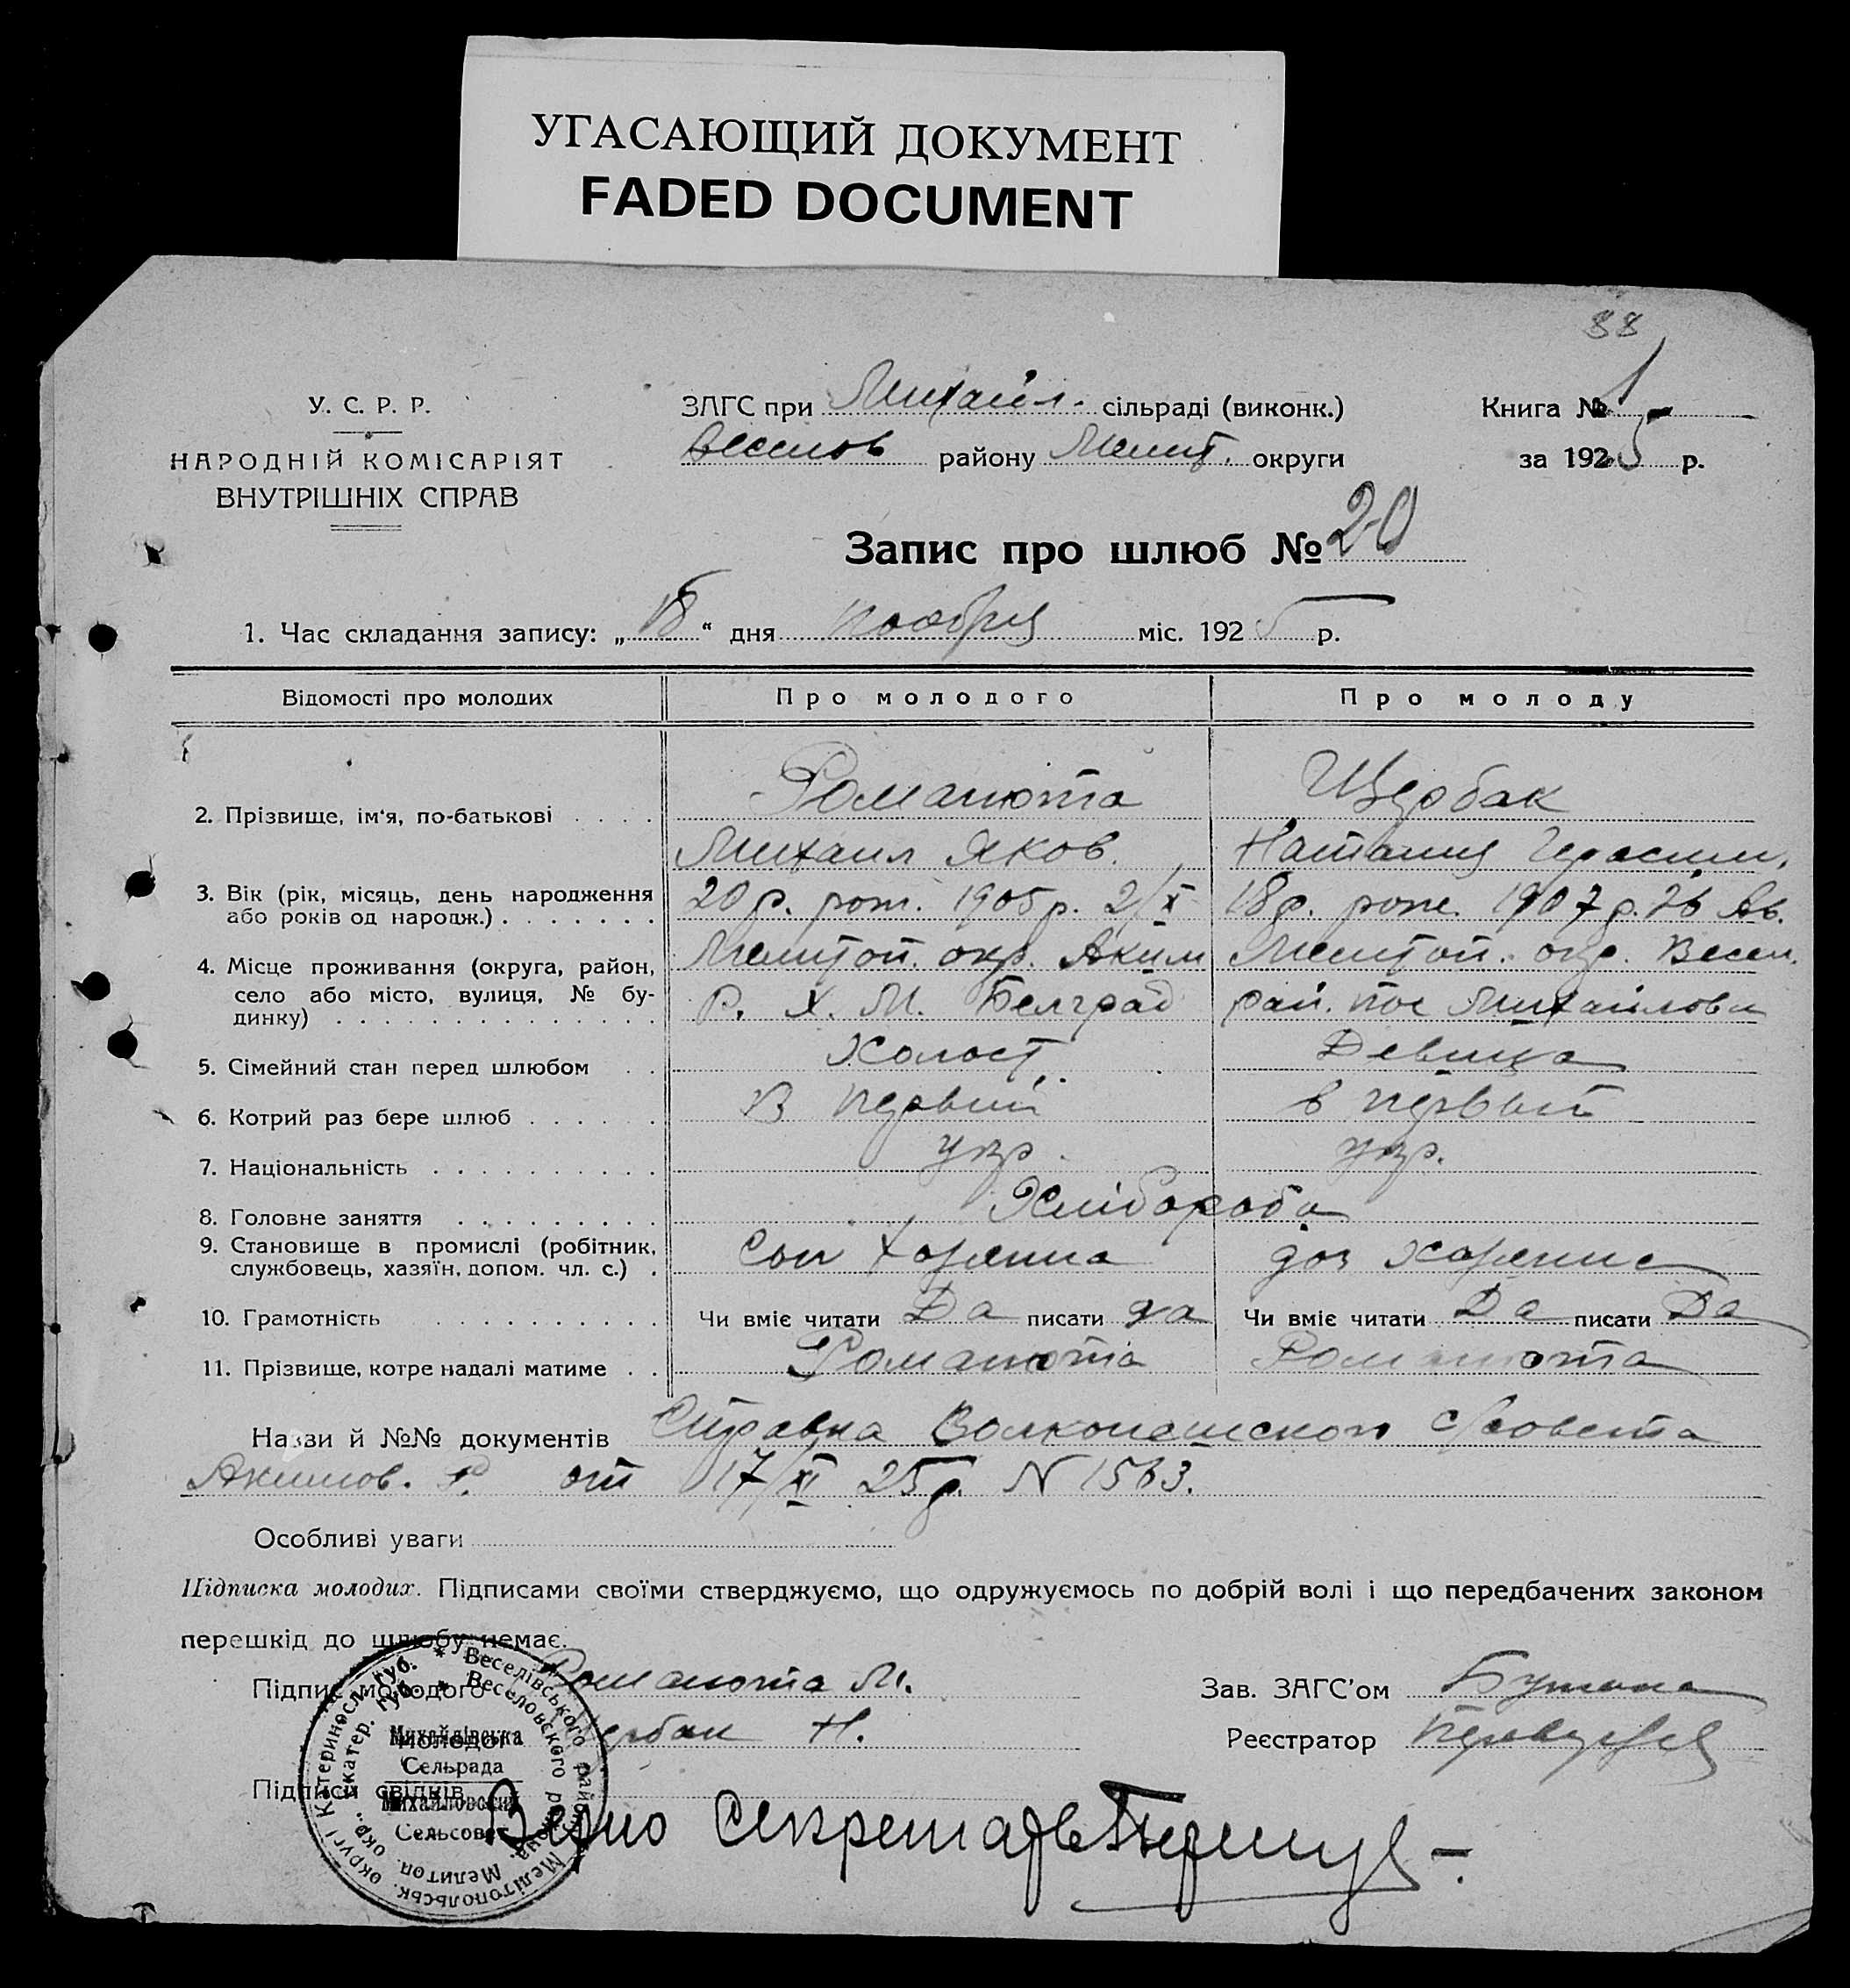 УГАСАЮЩИЙ ДОКУМЕНТ
FADED DOCUMENT
88
У. С. Р. Р.
НАРОДНІЙ КОМІСАРІЯТ
ВНУТРІШНІХ СПРАВ
ЗАГС при Михайл. сільраді (виконк.)
Веселов району Мелит. округи
Книга № 1
за 1925 р.
Запис про шлюб № 20
1. Час складання запису: „18“ дня ноября міс. 1925 р.
Відомості про молодих
Про молодого
Про молоду
2. Прізвище, ім'я, по-батькові
Романюта
Михаил Яков.
Щербак
Наталия Герасим.
3. Вік (рік, місяць, день народження
або років од народж.)
20 р. рож. 1905 р. 2/X
18 р. рож. 1907 р. 26 Ав.
4. Місце проживання (округа, район,
село або місто, вулиця, № бу-
динку)
Мелитоп. окр. Аким
Р. Х. М. Белград
Мелитоп. окр. Весел.
рай. пос Михайловки
5. Сімейний стан перед шлюбом
Холост
Девица
6. Котрий раз бере шлюб
В первый
в первый
7. Національність
укр.
укр.
8. Головне заняття
Хлібороби
9. Становище в промислі (робітник,
службовець, хазяїн, допом. чл. с.)
Сын хозяина
доч хозяина
10. Грамотність
Чи вміє читати Да писати да
Чи вміє читати Да писати Да
11. Прізвище, котре надалі матиме
Романюта
Романюта
Назви й №№ документів Справка с/совета
Акимов. Р. от 17/XI 25 р. N 1563.
Особливі уваги
Підписка молодих. Підписами своїми стверджуємо, що одружуємось по добрій волі і що передбачених законом
перешкід до шлюбу немає.
Підпис молодого Романюта М.
Зав. ЗАГС'ом
молодої Щербак Н.
Реєстратор
Підписи свідків
Верно Секретарь
Веселівського району Мелітопольськ. округі Катеринослав. губ.
Веселовского района Мелитоп. окр. Екатер. губ.
Михайлівська
Сельрада
Михайловский
Сельсовет